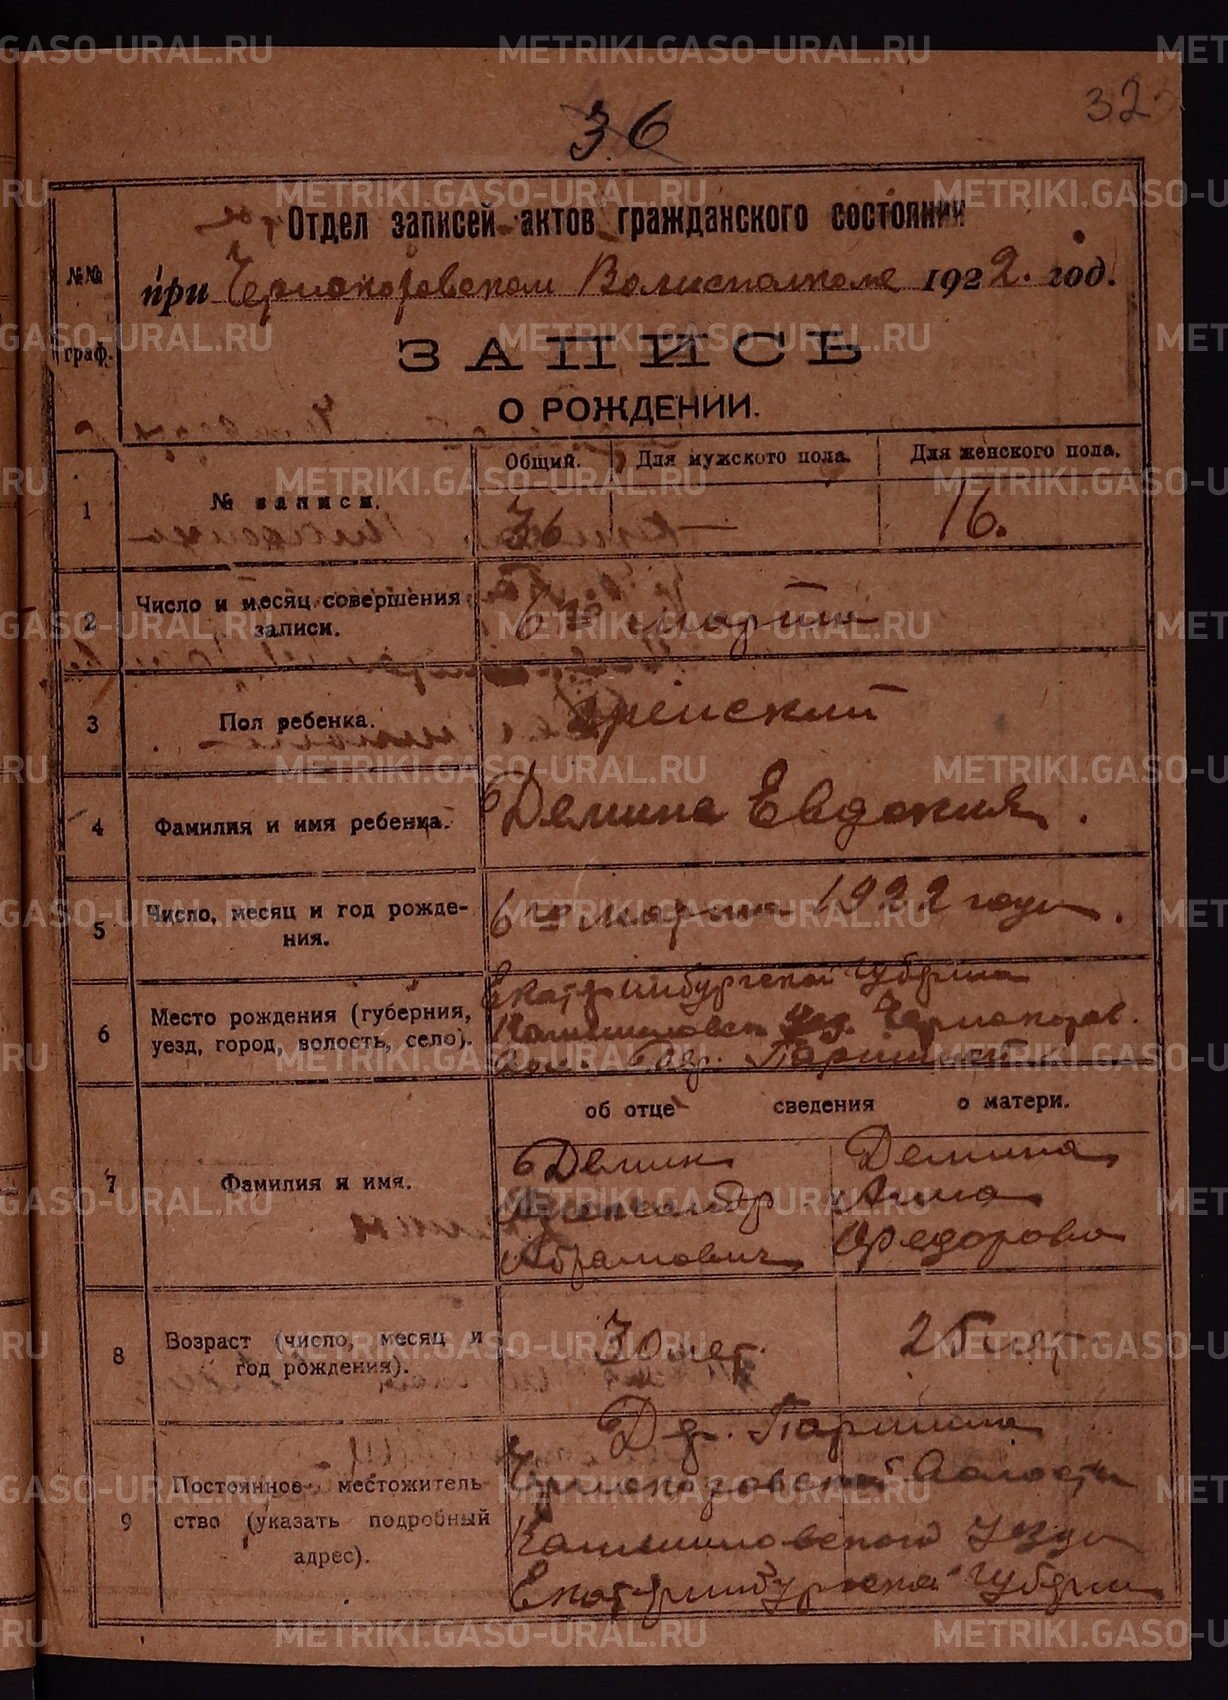 METRIKI.GASO-URAL.RU
32
36
№№ граф.
Отдел записей актов гражданского состояния
при Чернокоровском Волисполкоме 1922. год.
ЗАПИСЬ
О РОЖДЕНИИ.
Общий. Для мужского пола. Для женского пола.
1 № записи. 36 — 16.
2 Число и месяц совершения
записи.
6го марта
3 Пол ребенка. Женский
4 Фамилия и имя ребенка. Демина Евдокия.
5 Число, месяц и год рожде-
ния.
6го марта 1922 года.
6 Место рождения (губерния,
уезд, город, волость, село).
Екатеринбургской губернии
Камышловск уез. Чернокоров.
вол. дер. Паршин
об отце сведения о матери.
7 Фамилия и имя.
Демин
Александр
Абрамович
Демина
Анна
Федорова
8 Возраст (число, месяц и
год рождения).
30 лет. 25 лет
9 Постоянное местожитель-
ство (указать подробный
адрес).
Дер. Паршина
Чернокоровской Волости
Камышловского уезда
Екатеринбургской губернии